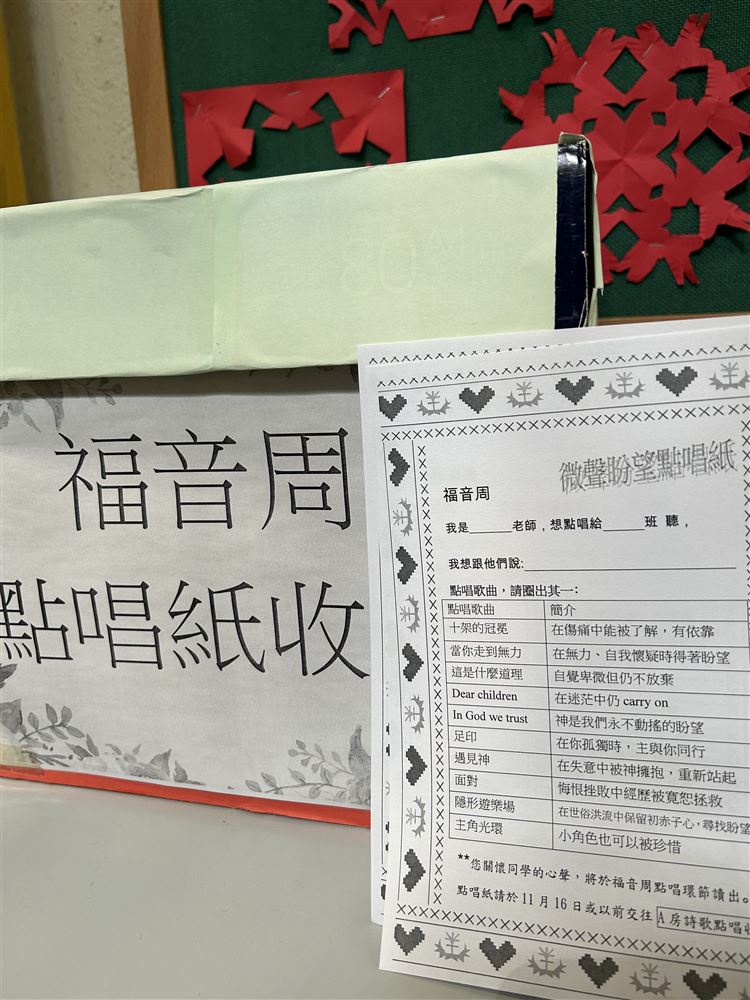 80
福音周
點唱紙收
微聲盼望點唱紙
福音周
我是______老師，想點唱給______班 聽，
我想跟他們說:
點唱歌曲，請圈出其一:
點唱歌曲 簡介
十架的冠冕 在傷痛中能被了解，有依靠
當你走到無力 在無力、自我懷疑時得著盼望
這是什麼道理 自覺卑微但仍不放棄
Dear children 在迷茫中仍 carry on
In God we trust 神是我們永不動搖的盼望
足印 在你孤獨時，主與你同行
遇見神 在失意中被神擁抱，重新站起
面對 悔恨挫敗中經歷被寬恕拯救
隱形遊樂場 在世俗洪流中保留初赤子心，尋找盼望
主角光環 小角色也可以被珍惜
**您關懷同學的心聲，將於福音周點唱環節讀出。
點唱紙請於 11 月 16 日或以前交往 A 房詩歌點唱收